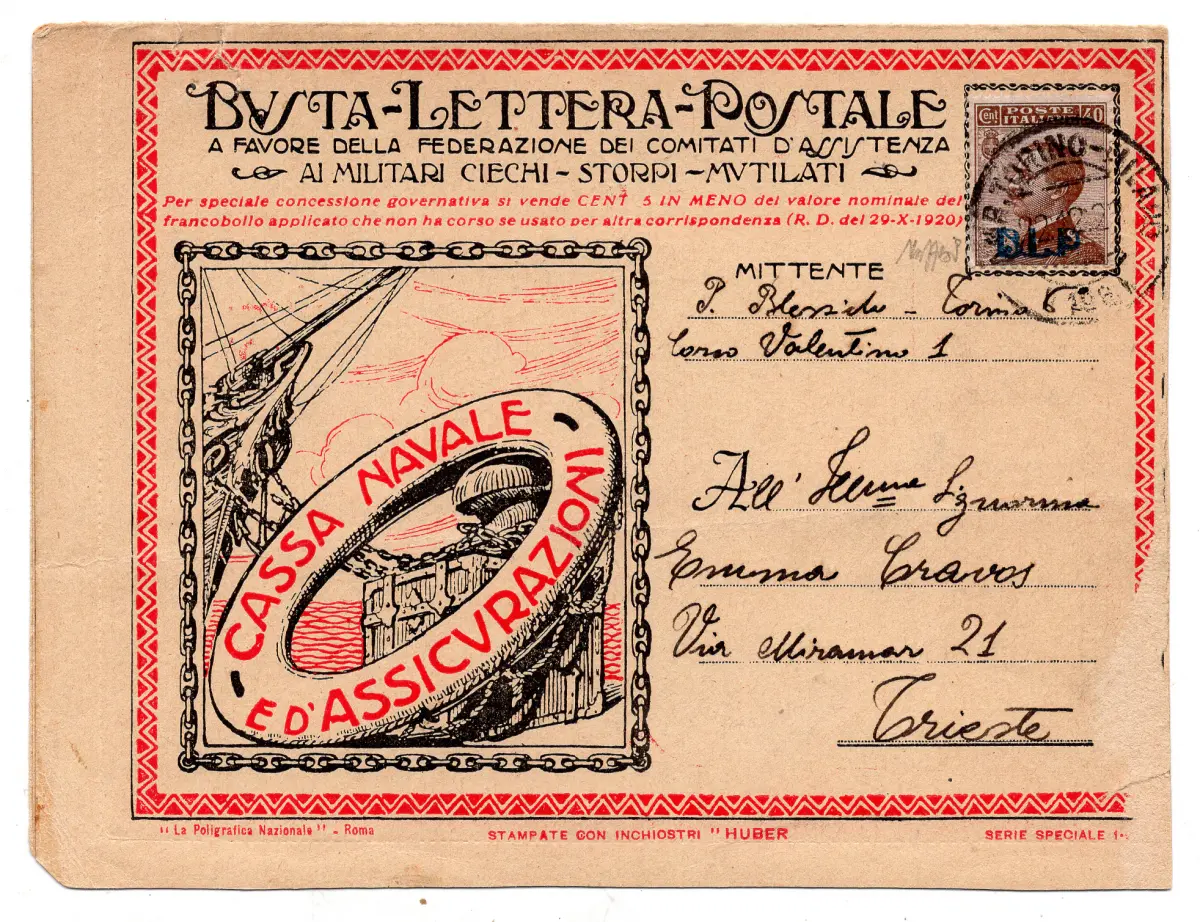 BVSTA-LETTERA-POSTALE
A FAVORE DELLA FEDERAZIONE DEI COMITATI D'ASSISTENZA
AI MILITARI CIECHI - STORPI - MVTILATI
Per speciale concessione governativa si vende CENT 5 IN MENO del valore nominale del
francobollo applicato che non ha corso se usato per altra corrispondenza (R. D. del 29-X-1920)
Cent POSTE ITALIANE 40
TORINO-MILANO
B.L.P
MITTENTE
P. - Torino
Corso Valentino 1
CASSA NAVALE
E D'ASSICVRAZIONI
All' Illma Signorina
Emma Cravos
Via Miramar 21
Trieste
"La Poligrafica Nazionale" - Roma
STAMPATE CON INCHIOSTRI "HUBER
SERIE SPECIALE 1-